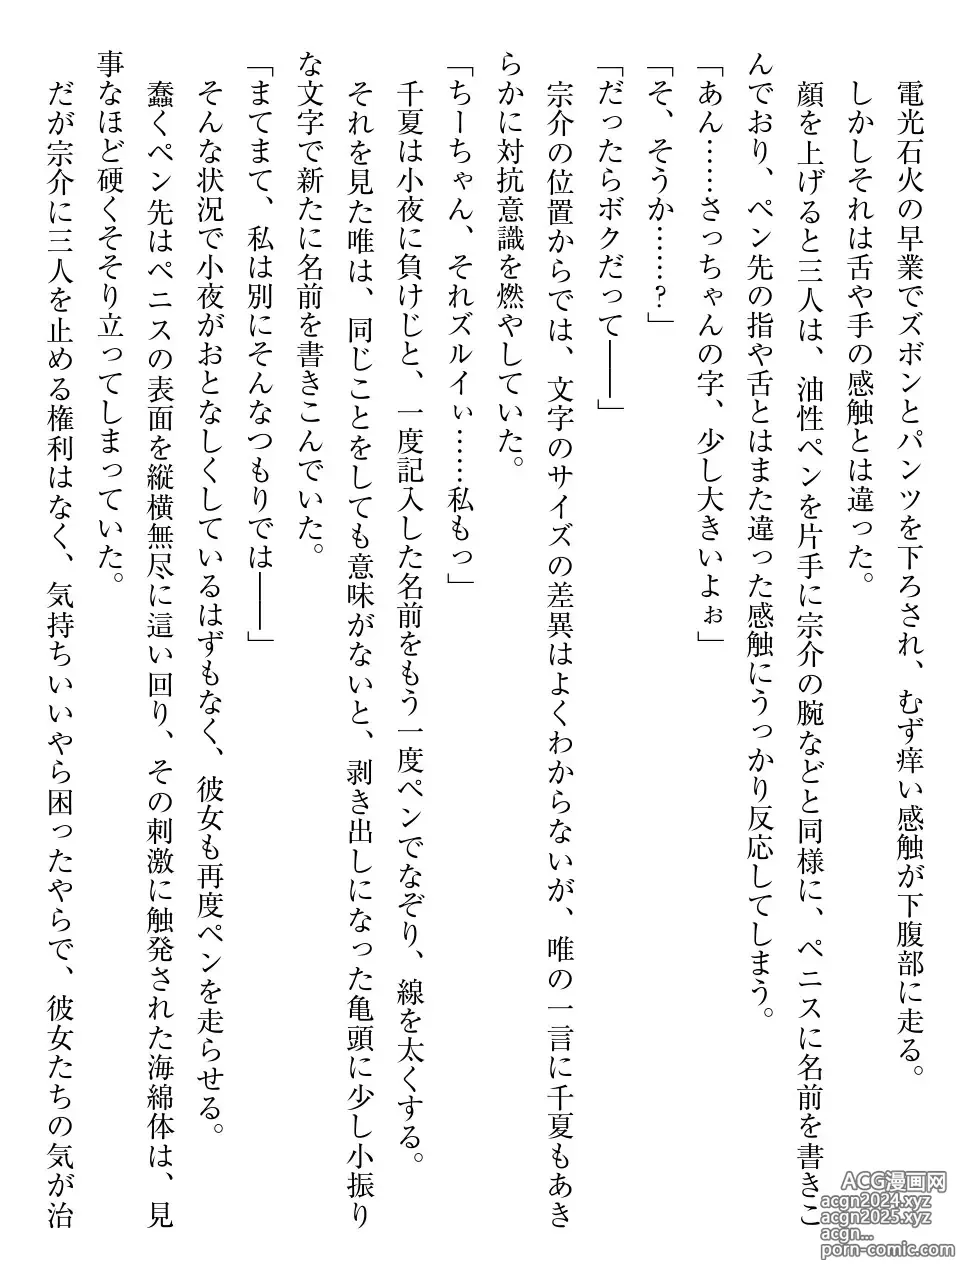 電光石火の早業でズボンとパンツを下ろされ、むず痒い感触が下腹部に走る。
しかしそれは舌や手の感触とは違った。
顔を上げると三人は、油性ペンを片手に宗介の腕などと同様に、ペニスに名前を書きこ
んでおり、ペン先の指や舌とはまた違った感触にうっかり反応してしまう。
「あん……さっちゃんの字、少し大きいよぉ」
「そ、そうか……?」
「だったらボクだって――」
宗介の位置からでは、文字のサイズの差異はよくわからないが、唯の一言に千夏もあき
らかに対抗意識を燃やしていた。
「ちーちゃん、それズルイぃ……私もっ」
千夏は小夜に負けじと、一度記入した名前をもう一度ペンでなぞり、線を太くする。
それを見た唯は、同じことをしても意味がないと、剥き出しになった亀頭に少し小振り
な文字で新たに名前を書きこんでいた。
「まてまて、私は別にそんなつもりでは――」
そんな状況で小夜がおとなしくしているはずもなく、彼女も再度ペンを走らせる。
蠢くペン先はペニスの表面を縦横無尽に這い回り、その刺激に触発された海綿体は、見
事なほど硬くそそり立ってしまっていた。
だが宗介に三人を止める権利はなく、気持ちいいやら困ったやらで、彼女たちの気が治
ACG漫画网
acgn2024.xyz
acgn2025.xyz
acgn...
porn-comic.com